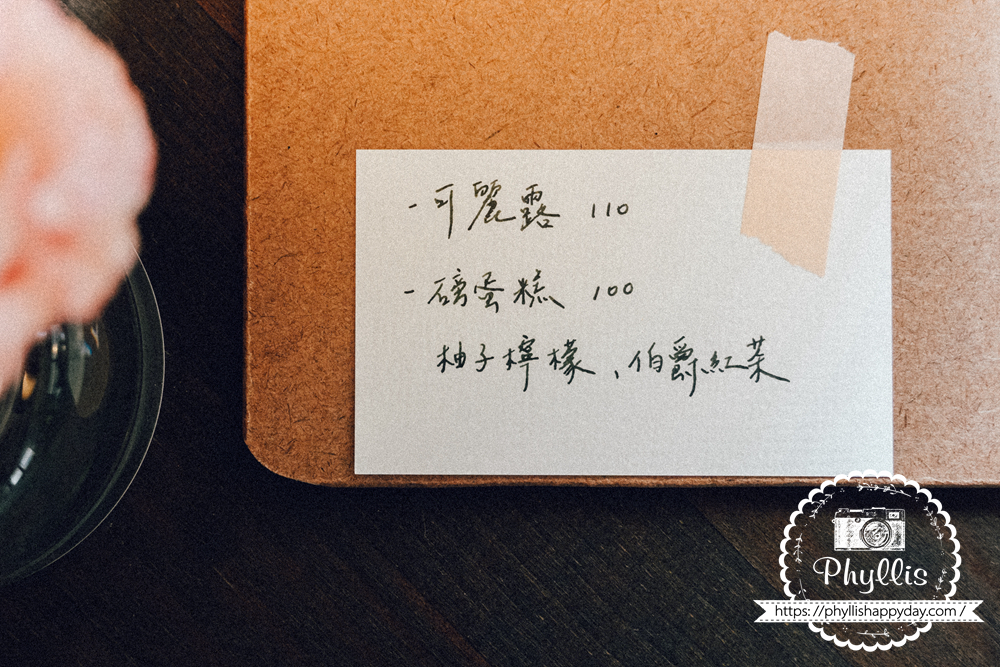 - 可麗露 110
- 磅蛋糕 100
柚子檸檬、伯爵紅茶
Phyllis
https://phyllishappyday.com/